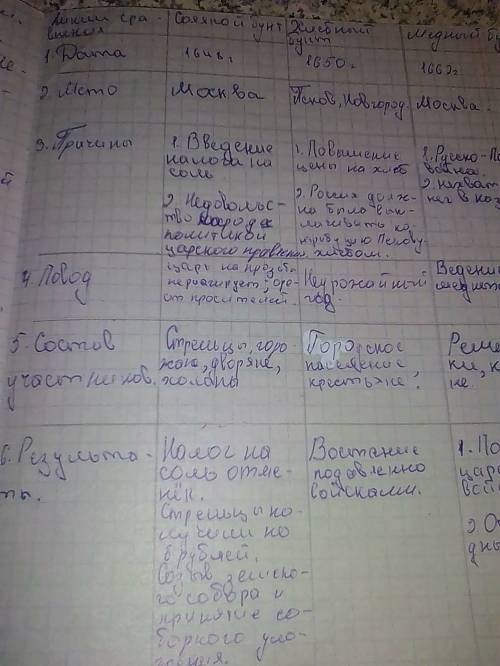 Линии сра-
внения
Соляной бунт
Хлебный
бунт
Медный бу
1. Дата
1648г.
1650г.
1662г.
2. Место
Москва
Псков, Новгород.
Москва.
3. Причины
1. Введение
налога на
соль
2. Недовольс-
тво народа
политикой
царского правления.
1. Повышение
цены на хлеб
2. Россия долж-
на была вып-
лачивать
хлебом.
1. Русско-По
война.
2. нехват
нег в каз
4. Повод
царь на прозьбы
нереагирует,
ст просителей.
Неурожайный
год.
Ведение
медных
5. Состав
участников.
Стрельцы, горо-
жане, дворяне,
холопы
Городское
население,
крестьяне.
Реме
ки, к
не.
6. Результа-
ты.
Налог на
соль отме-
нён.
Стрельцы по-
лучили по
8 рублей.
Созыв земско-
го собора и
принятие со-
борного уло-
жения.
Востание
подавленно
войсками.
1. По
царс
вой
2. От
дны